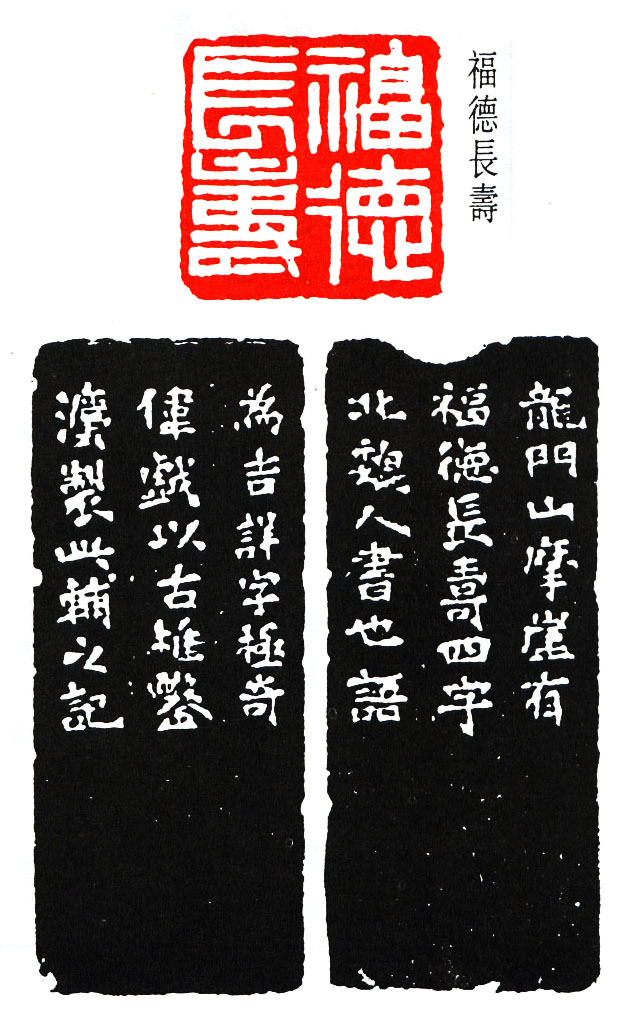 福德長壽
福德
長壽
龍門山摩崖有
福德長壽四字
北魏人書也語
為吉詳字極奇
偉戲以古椎鑿
灋製此輔之記